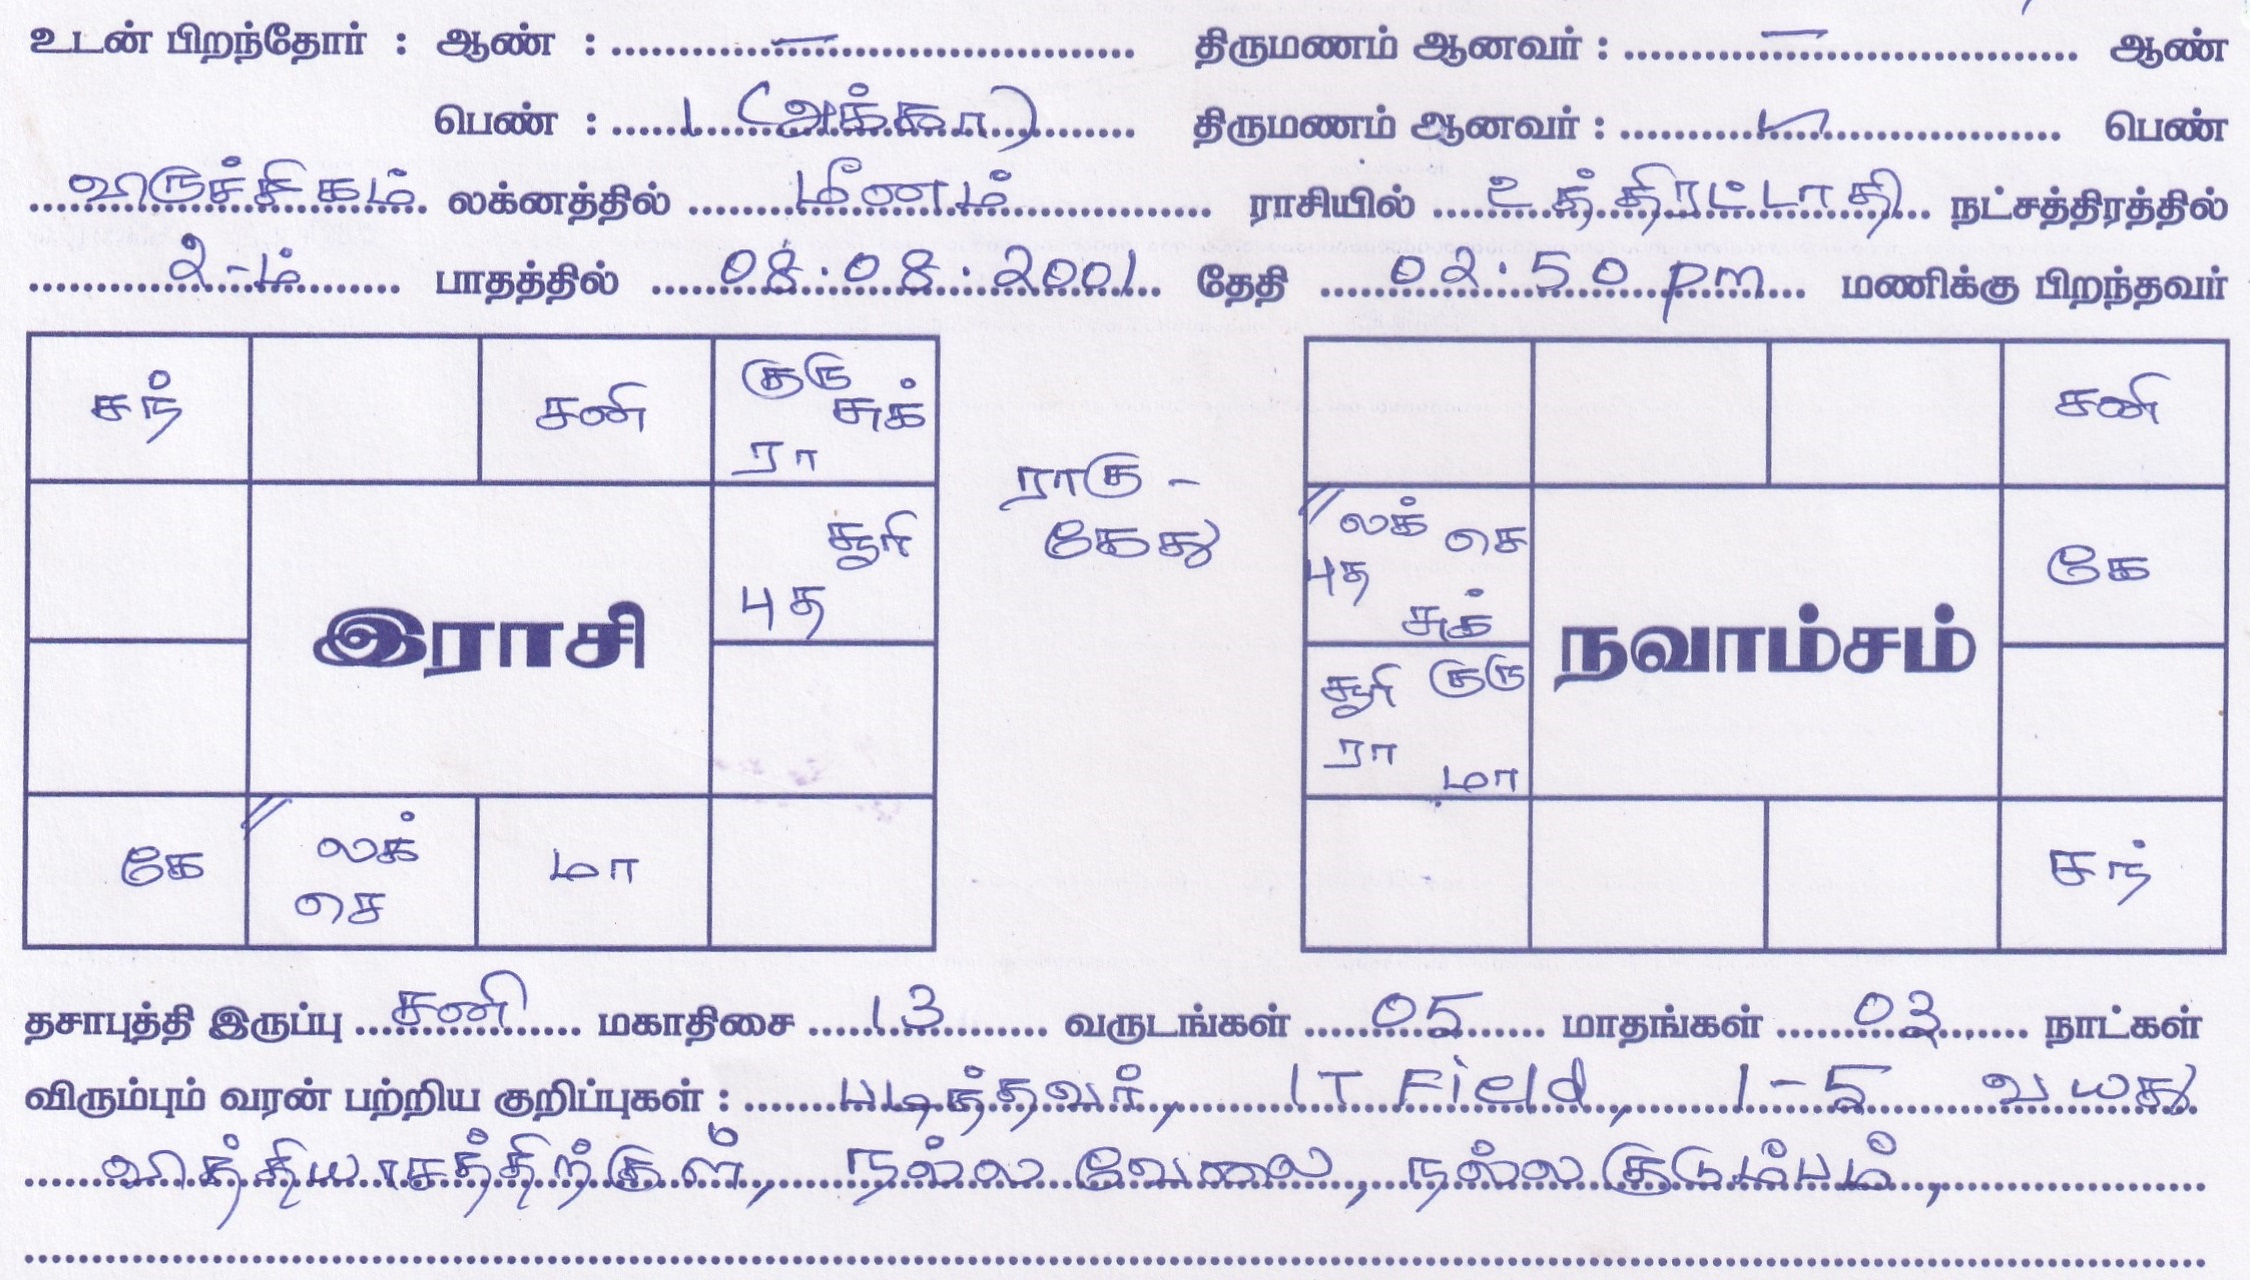 உடன் பிறந்தோர் : ஆண் : ............ – ............ திருமணம் ஆனவர் : ............ – ............ ஆண்
பெண் : ...... 1 (அக்கா) ...... திருமணம் ஆனவர் : ............ பெண்
விருச்சிகம் லக்னத்தில் மீனம் ராசியில் உத்திரட்டாதி நட்சத்திரத்தில்
2-ம் பாதத்தில் 08.08.2001 தேதி 02.50 pm மணிக்கு பிறந்தவர்
சந் சனி குரு சுக் ரா
சூரி புத
இராசி
கே லக் செ மா
ராகு -
கேது
சனி
லக் செ புத சுக் கே
நவாம்சம்
சூரி குரு ரா மா
சந்
தசாபுத்தி இருப்பு சனி மகாதிசை 13 வருடங்கள் 05 மாதங்கள் 03 நாட்கள்
விரும்பும் வரன் பற்றிய குறிப்புகள் : படித்தவர், IT Field, 1-5 வயது
வித்தியாசத்திற்குள், நல்ல வேலை, நல்ல குடும்பம்,